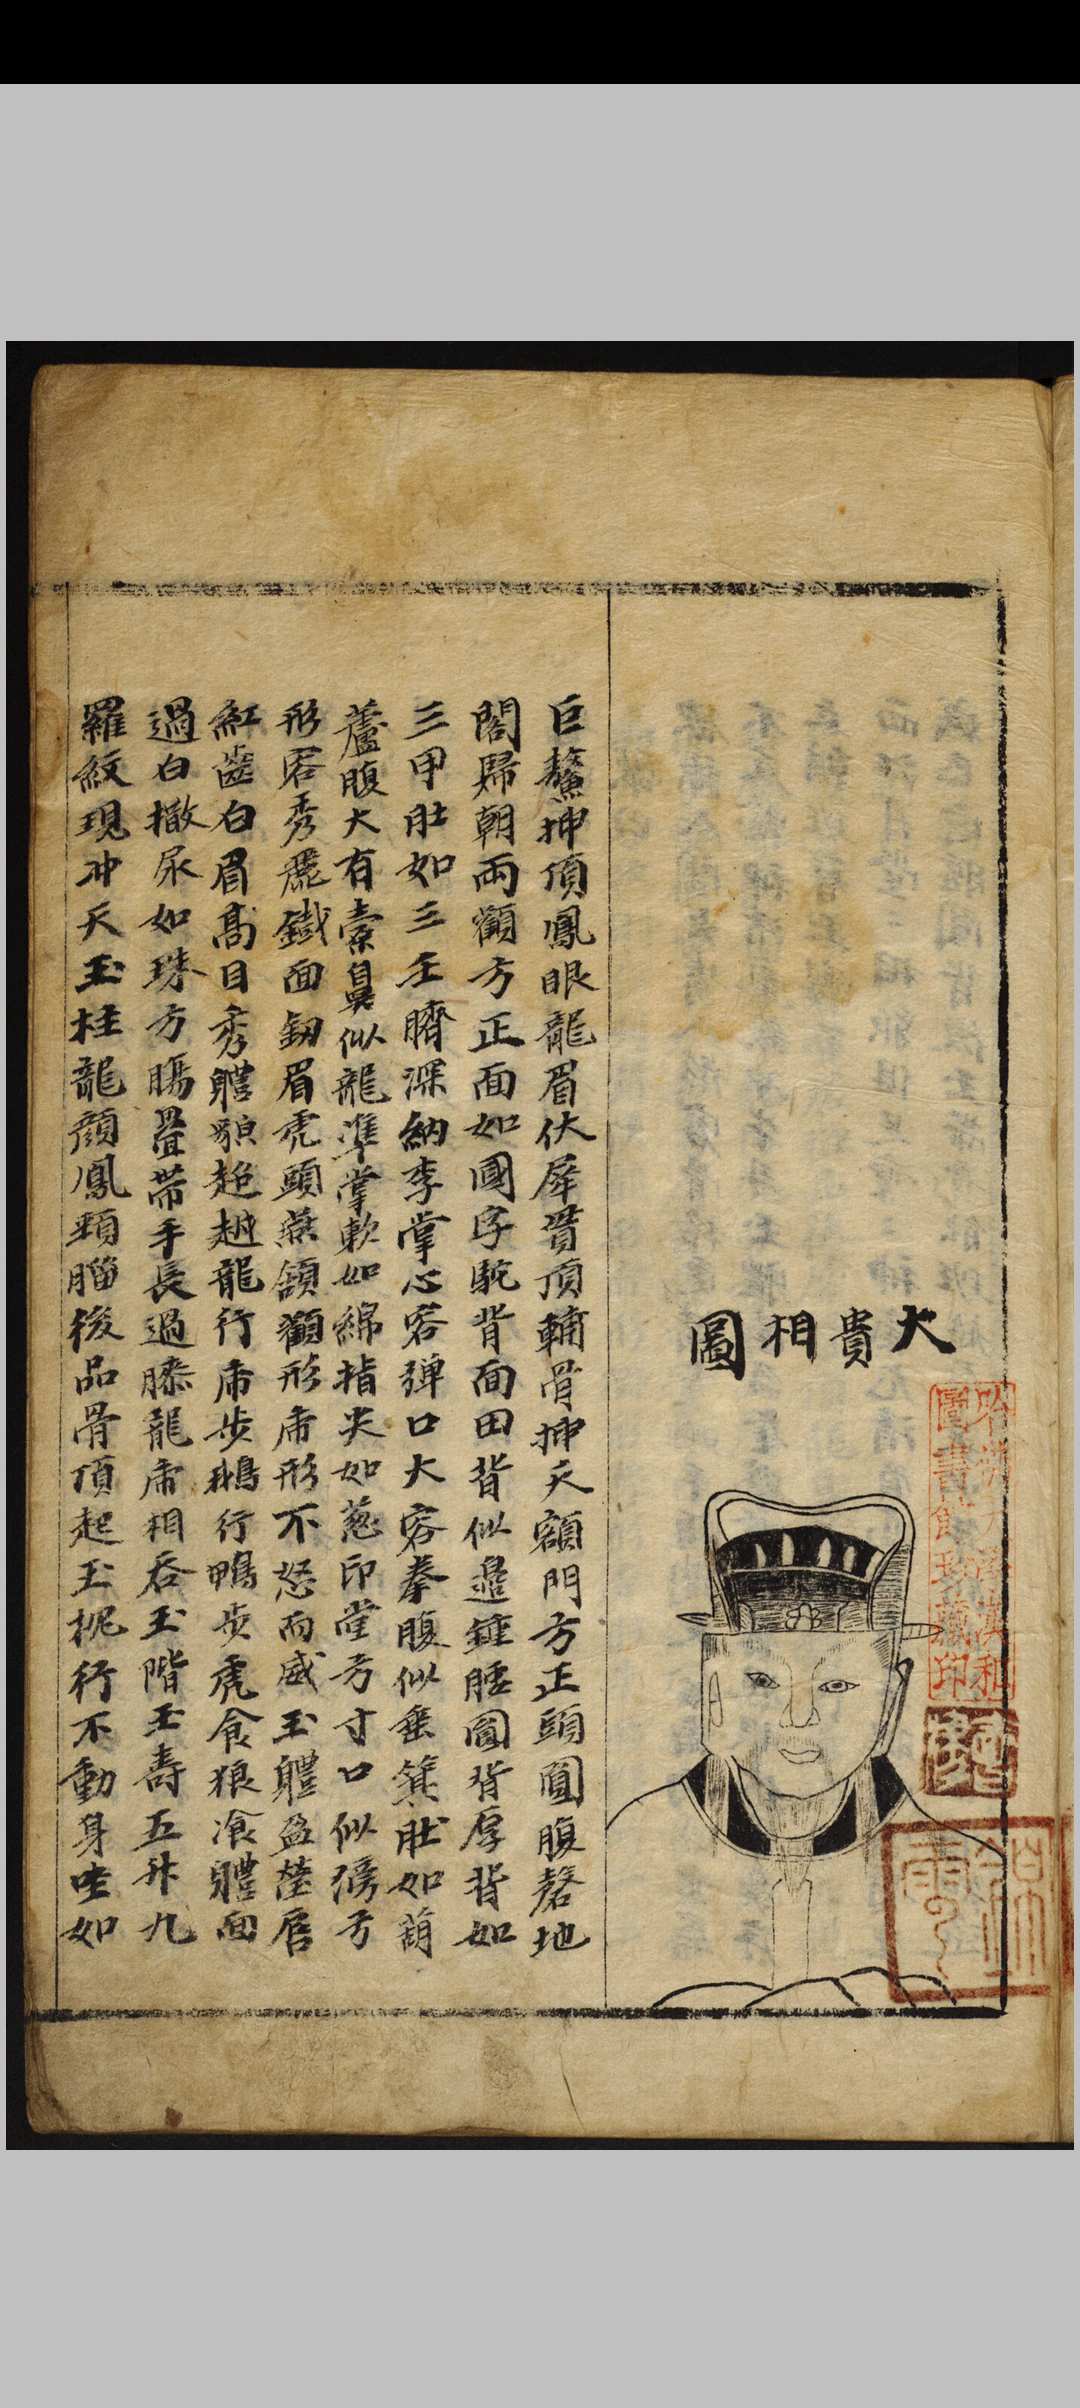 大貴相圖
巨鰲抻頂鳳眼龍眉伏犀貫頂輔骨抻天額門方正頭圓腹磬地
閣歸朝兩顴方正面如國字駝背面田背似邉鍾腰圓背厚背如
三甲肚如三壬臍深納李掌心容弹口大容拳腹似垂箕肚如葫
蘆腹大有橐鼻似龍準掌軟如綿指尖如葱印堂方寸口似方
形容秀麗鐵面釼眉虎頭燕頷顴形乕形不怒而威玉軆盈唇
紅齒白眉高目秀軆貌超越龍行乕步鵝行鴨步虎食狼飡軆面
過白撤尿如珠方膓疊帶手長過膝龍乕相吞玉階玉壽五升九
羅紋現冲天玉柱龍顔鳳頸腦後品骨頂起玉枕行不動身坐如
圖書館珍藏印